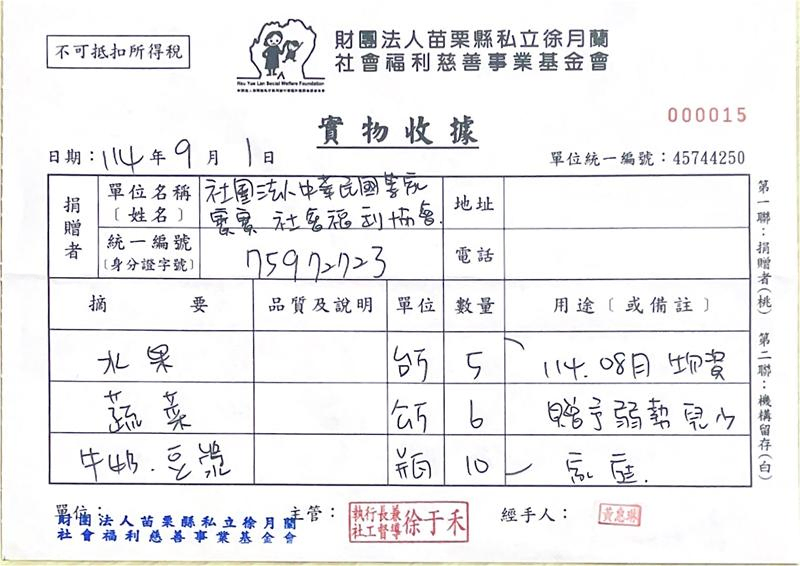 不可抵扣所得稅
Hsu Yue Lan Social Welfare Foundation
財團法人苗栗縣私立徐月蘭
社會福利慈善事業基金會
000015
實物收據
日期：114年9月1日
單位統一編號：45744250
捐贈者
單位名稱〔姓名〕 社團法人中華民國書家寶寶社會福利協會. 地址
統一編號〔身分證字號〕 75972723 電話
摘要 品質及說明 單位 數量 用途〔或備註〕
水果 台斤 5 114.08月物資
蔬菜 台斤 6 贈予弱勢兒少
牛奶.豆漿 瓶 10 家庭.
第一聯：捐贈者(桃)
第二聯：機構留存(白)
單位：
財團法人苗栗縣私立徐月蘭
社會福利慈善事業基金會
主管：
執行長兼
社工督導
徐于禾
經手人：